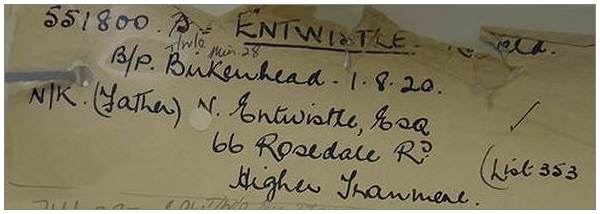 551800. ENTWISTLE.
T/W/O Mus. 28
B/P. Birkenhead. 1.8.20.
N/K. (Father) N. Entwistle, Esq
66 Rosedale Rd
(List 353
Higher Tranmere.